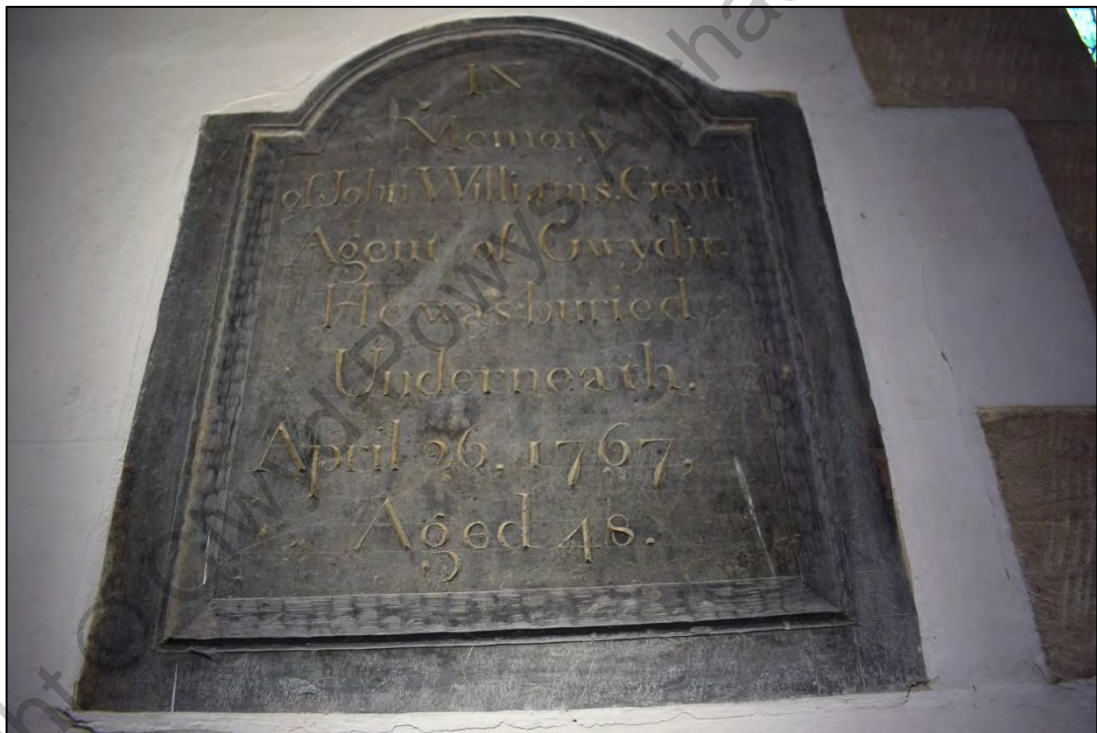 IN
Memory
of John Williams. Gent.
Agent of Gwydir
He was buried
Underneath.
April 26, 1767,
Aged 48.
© Clwyd-Powys